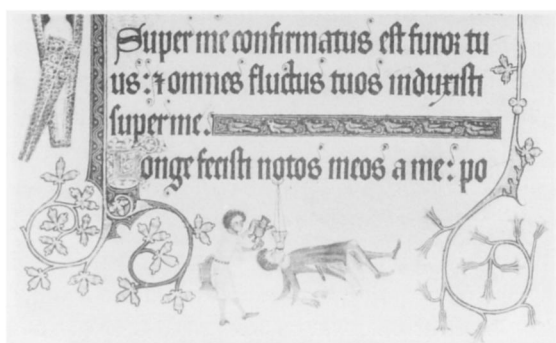 Super me confirmatus est furor tu
us: ⁊ omnes fluctus tuos induxisti
super me.
Longe fecisti notos meos a me: po